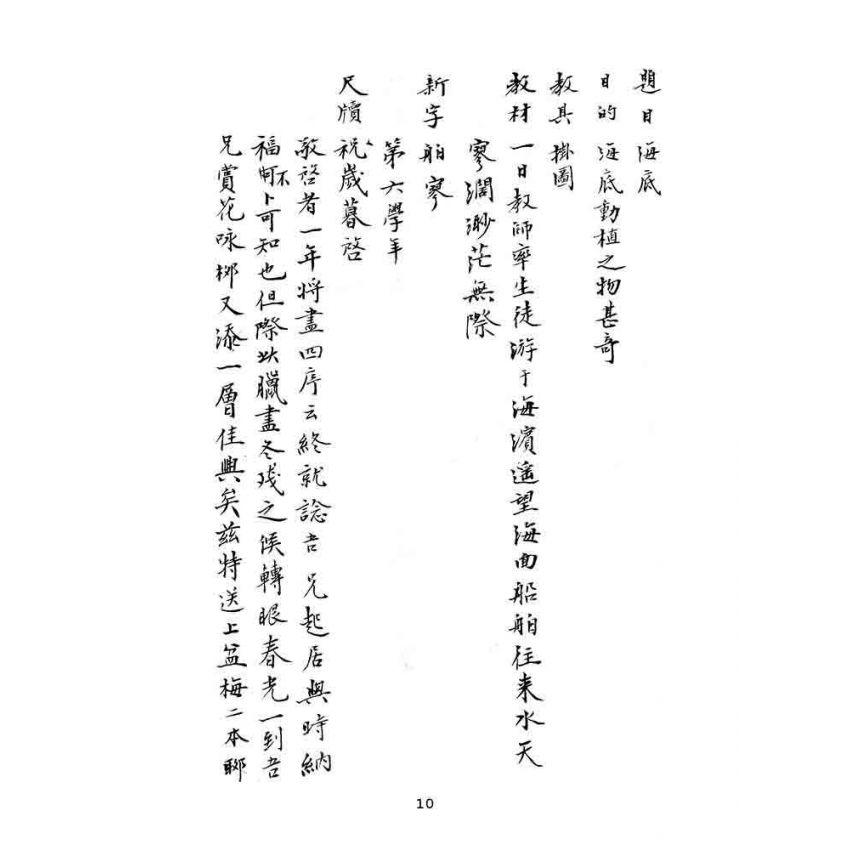 題目 海底
目的 海底動植之物甚奇
教具 掛圖
教材 一日教師率生徒游于海濱遥望海面船舶往来水天
寥濶渺茫無際
新字 舶寥
第六學年
尺牘 祝歲暮啓
敬啓者一年將盡四序云終就諗吾兄起居與時納
福不卜可知也但際此臘盡冬残之候轉眼春光一到吾
兄賞花咏柳又添一層佳興矣兹特送上盆梅二本聊
10